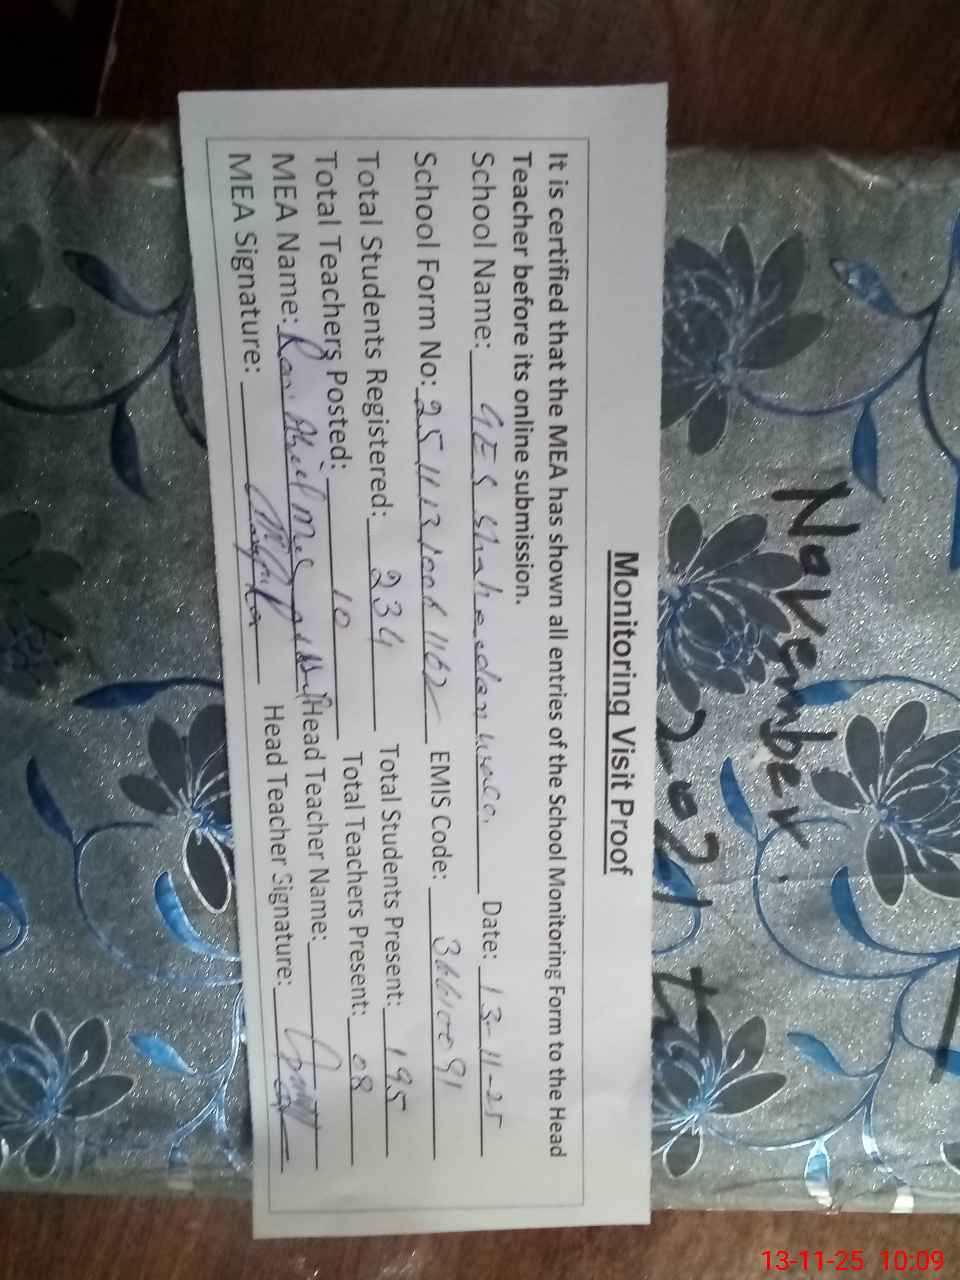 Monitoring Visit Proof
It is certified that the MEA has shown all entries of the School Monitoring Form to the Head
Teacher before its online submission.
School Name: GES Shaheedan Date: 13-11-25
School Form No: EMIS Code:
Total Students Registered: 234 Total Students Present: 195
Total Teachers Posted: 10 Total Teachers Present: 08
MEA Name: Head Teacher Name:
MEA Signature: Head Teacher Signature:
November.
2021 to
13-11-25 10:09